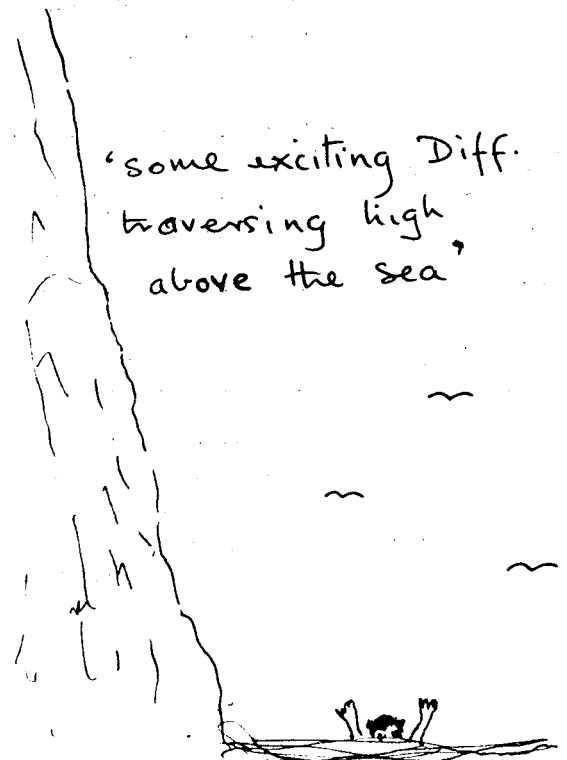 'some exciting Diff.
traversing high
above the sea'